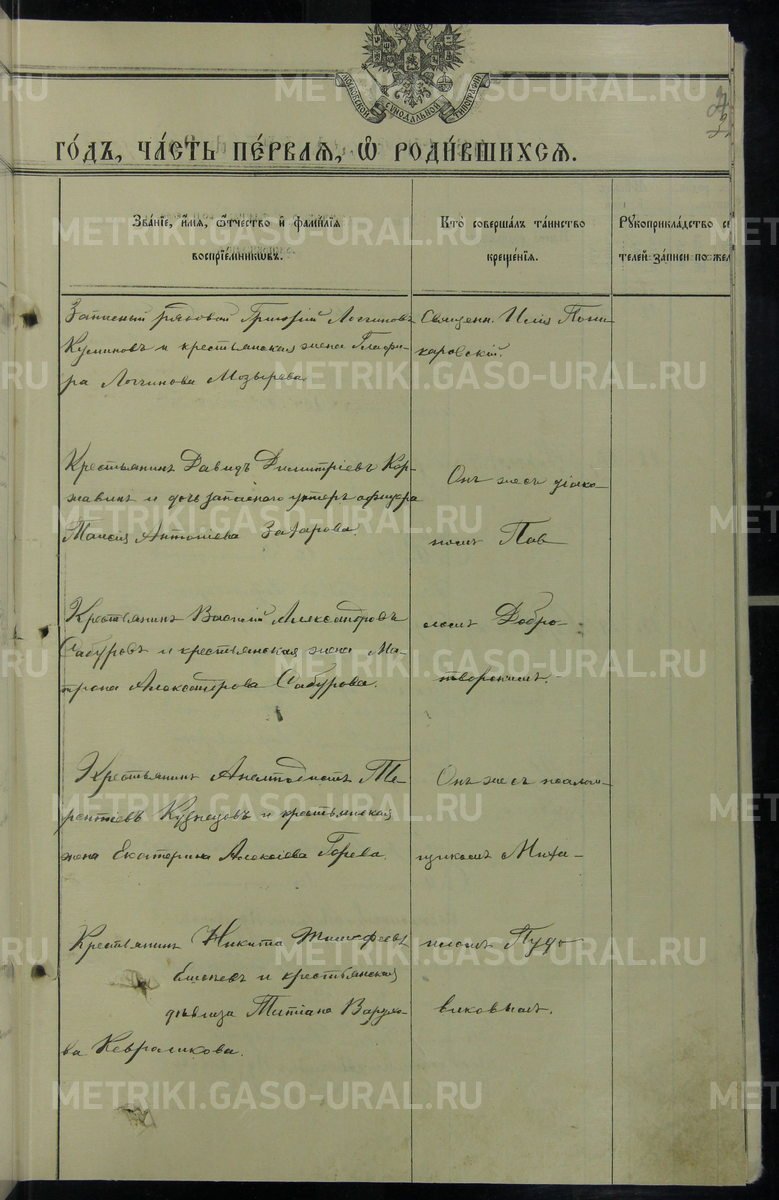 МОСКОВСКОЙ СѴНОДАЛЬНОЙ ТИПОГРАФІИ
го́дъ, ча́сть пе́рваѧ, ѡ҆ роди́вшихсѧ.
Зва́нїе, и҆́мѧ, ѻ҆́тчество и҆ фами́лїѧ
воспрїе́мникѡвъ.
Кто̀ соверша́лъ та́инство
креще́нїѧ.
Рꙋкоприкла́дство
телей за́писи по жел
Запасный рядовой Григорій Логгиновъ
и крестьянская жена Глафи-
ра Логгинова Мозырева.
Священ. Илія Пони-
каровскій.
Крестьянинъ Давидъ Димитріевъ Кор-
жавинъ и дочь запаснаго унтеръ офицера
Таисія Антоніева Захарова.
Онъ же съ діако-
номъ Пав
Крестьянинъ Василій Александровъ
Сабуровъ и крестьянская жена Ма-
трона Александрова Сабурова.
ломъ Добро-
творскимъ.
Крестьянинъ Анемподистъ Те-
рентіевъ Кузнецовъ и крестьянская
жена Екатерина Алексіева Горева.
Онъ же съ псалом-
щикомъ Миха-
Крестьянинъ Никита Тимофеевъ
и крестьянская
дѣвица Татіана
ва
иломъ Пудо-
виковымъ.
METRIKI.GASO-URAL.RU